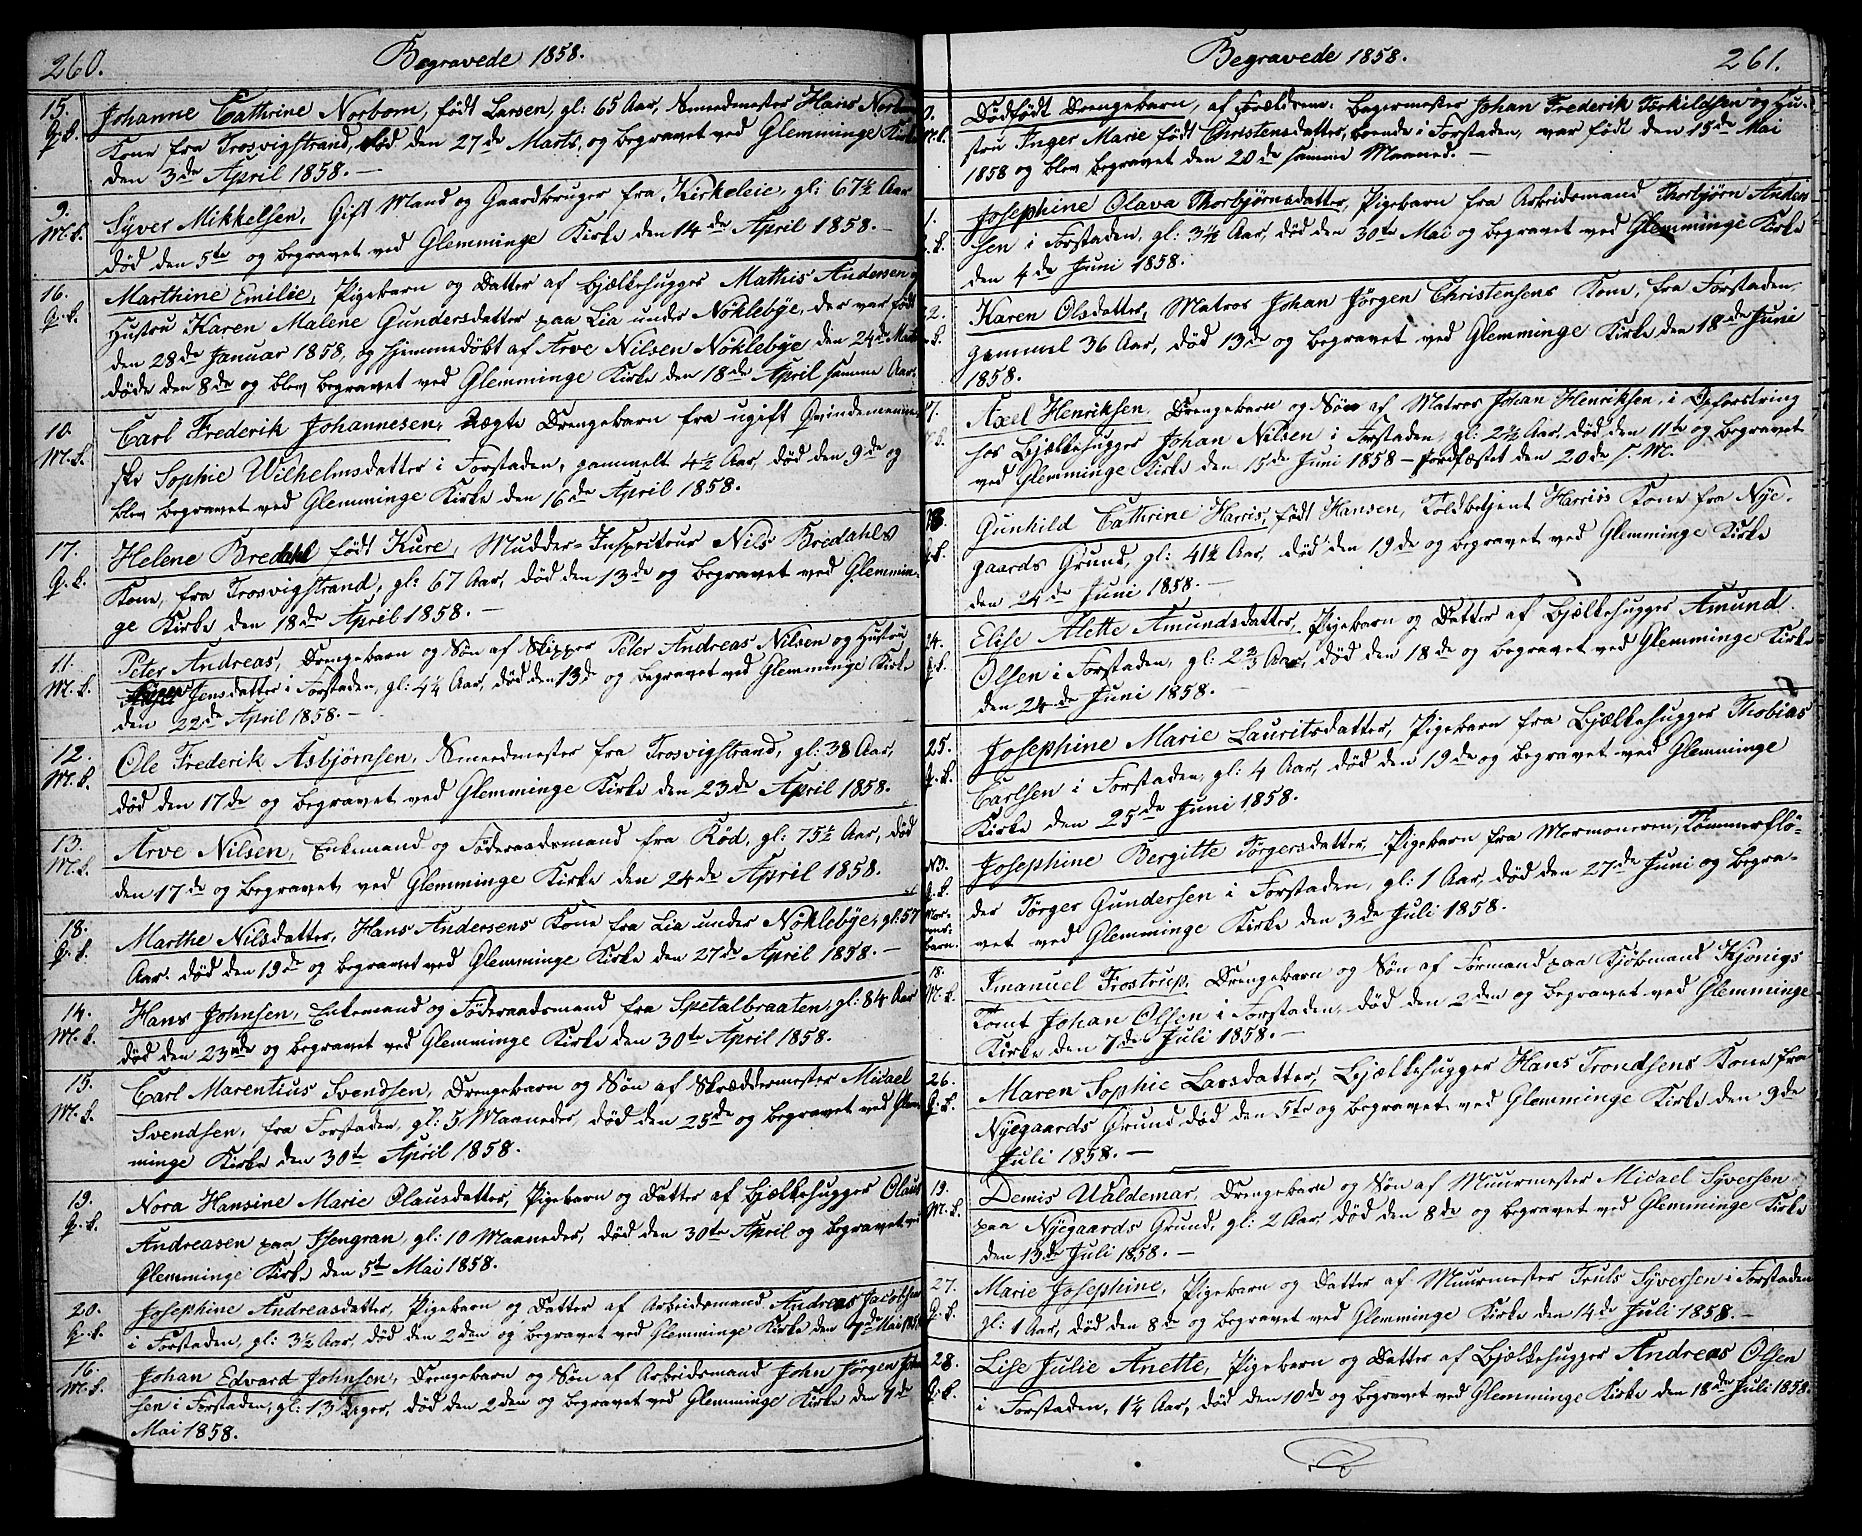 260.
Begravede 1858.
15. Johanne Cathrine Norbom, født Larsen, gl: 65 Aar, Smedmester Hans Norbom
Q.K. Kone fra Trosvigstrand, død den 27de Marts, og begravet ved Glemminge Kirke
den 3de April 1858.—
9. Syver Mikkelsen, Gift Mand og Gaardbruger fra Kirkeleie, gl: 67½ Aar
M.K. død den 5te og begravet ved Glemminge Kirke den 14de April 1858.—
16. Marthine Emilie, Pigebarn og Datter af Bjelkehugger Mathis Andersen og
Q.K. Hustru Karen Malene Gundersdatter paa Lia under Nøklebye, der var født
den 28de Januar 1858, og hjemmedøbt af Arve Nilsen Nøklebye den 24de Marts
døde den 8de og blev begravet ved Glemminge Kirke den 18de April samme Aar.
10. Carl Frederik Johannesen, uægte Drengebarn fra ugift Qvindemenne-
M.K. ske Sophie Wilhelmsdatter i Forstaden, gammelt 4½ Aar, død den 9de og
blev begravet ved Glemminge Kirke den 16de April 1858.
17. Helene Bredahl født Kure, Mudder-Inspecteur Nils Bredahls
Q.K. Kone, fra Trosvigstrand, gl: 67 Aar, død den 13de og begravet ved Glemmin-
ge Kirke den 18de April 1858.—
11. Peter Andreas, Drengebarn og Søn af Skipper Peter Andreas Nilsen og Hustru
M.K. Jensdatter i Forstaden, gl: 4¼ Aar, død den 13de og begravet ved Glemminge Kirke
den 22de April 1858.—
12. Ole Frederik Asbjørnsen, Smedmester fra Trosvigstrand, gl: 38 Aar,
M.K. død den 17de og begravet ved Glemminge Kirke den 23de April 1858.
13. Arve Nilsen, Enkemand og Føderaadsmand fra Rød, gl: 75½ Aar, død
M.K. den 17de og begravet ved Glemminge Kirke den 24de April 1858.
18. Marthe Nilsdatter, Hans Andersens Kone fra Lia under Nøklebye, gl: 57
Q.K. Aar. død den 19de og begravet ved Glemminge Kirke den 27de April 1858.—
14. Hans Johnsen, Enkemand og Føderaadsmand fra Spetalbraaten, gl: 84 Aar
M.K. død den 23de og begravet ved Glemminge Kirke den 30te April 1858.
15. Carl Marentius Svendsen, Drengebarn og Søn af Skræddermester Micael
M.K. Svendsen, fra Forstaden, gl: 5 Maaneder, død den 25de og begravet ved Glem-
minge Kirke den 30te April 1858.
19. Nora Hansine Marie Olausdatter, Pigebarn og Datter af Bjelkehugger Olaus
Q.K. Andreasen paa gl: 10 Maaneder, død den 30te April og begravet ved
Glemminge Kirke den 5te Mai 1858.
20. Josephine Andreasdatter, Pigebarn og Datter af Arbeidsmand Andreas Jacobsen
Q.K. i Forstaden, gl: 3½ Aar, død den 2den og begravet ved Glemminge Kirke den 7de Mai 1858
16. Johan Edvard Johnsen, Drengebarn og Søn af Arbeidsmand John Jørgen John
M.K. sen i Forstaden, gl: 13 Dager, død den 2den og begravet ved Glemminge Kirke den 7de
Mai 1858.
Begravede 1858.
261.
Dødfødt Drengebarn, af Forældrene: Bagermester Johan Frederik Torkildsen og Hu-
stru Inger Marie født Christensdatter, boende i Forstaden, var født den 15de Mai
1858 og blev begravet den 20de samme Maaned.—
Josephine Olava Thorbjørnsdatter, Pigebarn fra Arbeidsmand Thorbjørn Anders
sen i Forstaden, gl: 3½ Aar, død den 30te Mai og begravet ved Glemminge Kirke
den 4de Juni 1858.
Karen Olsdatter, Matros Johan Jörgen Christensens Kone, fra Forstaden,
gammel 36 Aar, død 13de og begravet ved Glemminge Kirke den 18de Juni
1858.
Axel Henriksen, Drengebarn og Søn af Matros Johan Henriksen, i Opfostring
hos Bjelkehugger Johan Nilsen i Forstaden, gl: 2½ Aar, død den 11te og begravet
ved Glemminge Kirke den 15de Juni 1858 – Jordfæstet den 20de s: M.
Gunhild Cathrine Harris, født Hansen, Toldbetjent Harris's Kone fra Nye-
gaards Grund, gl: 41½ Aar, død den 19de og begravet ved Glemminge Kirke
den 24de Juni 1858.—
24. Elise Alette Amundsdatter, Pigebarn og Datter af Bjelkehugger Amund
Q.K. Olsen i Forstaden, gl: 2⅔ Aar, død den 18de og begravet ved Glemminge Kirke
den 24de Juni 1858.—
25. Josephine Marie Lauritsdatter, Pigebarn fra Bjelkehugger Thobias
Q.K. Carlsen i Forstaden, gl: 4 Aar, død den 19de og begravet ved Glemminge
Kirke den 25de Juni 1858.
N3. Josephine Bergitte Törgersdatter, Pigebarn fra Mormoneren, Tømmerflö-
Q.K. der Törger Gundersen i Forstaden, gl: 1 Aar, død den 27de Juni og begra-
Mor- mon- barn. vet ved Glemminge Kirke den 3de Juli 1858.
18. Imanuel Frostrup, Drengebarn og Søn af Formand paa Kjøbmand Kjönigs
M.K. Tomt Johan Olsen i Forstaden, død den 2den og begravet ved Glemminge
Kirke den 7de Juli 1858.—
26. Maren Sophie Larsdatter, Bjelkehugger Hans Trondsens Kone fra
Q.K. Nyegaards Grund, død den 5te og begravet ved Glemminge Kirke den 9de
Juli 1858.—
19. Demis Waldemar, Drengebarn og Søn af Muurmester Micael Syversen
M.K. paa Nyegaards Grund, gl: 2 Aar, død den 8de og begravet ved Glemminge Kirke
den 13de Juli 1858.—
27. Marie Josephine, Pigebarn og Datter af Muurmester Truls Syversen i Forstaden
Q.K. gl: 1 Aar, død den 8de og begravet ved Glemminge Kirke den 14de Juli 1858.—
28. Lise Julie Anette, Pigebarn og Datter af Bjelkehugger Andreas Olsen
Q.K. i Forstaden, 1¼ Aar, død den 10de og begravet ved Glemminge Kirke den 18de Juli 1858.